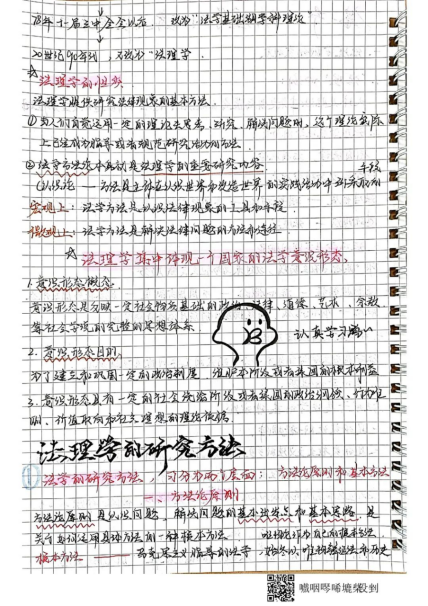 78年十一届三中全会以后， 改为“法学基础
20世纪90年代，又改为“法理学
法理学的性质
法理学提供研究法律现象的基本方法.
①当人们自觉运用一定的理论去思考、研究、解决问题时，这个理论实际
上已经成为指导或者规范研究活动的方法.
②法学方法论本身就是法理学的重要研究内容.
认识论 —— 方法是主体在认识世界和改造世界的实践活动中 手段
宏观上：法学方法是认识法律现象的工具和手段.
微观上：法学方法是解决法律问题的方法和途径.
法理学集中体现一个国家的法学意识形态.
1.意识形态概念.
意识形态是反映一定社会物质基础的政治、法律、道德、艺术、宗教
等社会学说的完整的思想体系
认真学习鹅~
2.意识形态目的.
为了建立和巩固一定的政治制度，维护本阶级或者集团的根本利益
3.意识形态具有一定的社会统治阶级或者集团的政治纲领、行为准
则、价值取向和社会理想的理论依据.
法理学的研究方法
①法学的研究方法，可分为两个层面：方法论原则和基本方法
一、方法论原则
方法论原则是认识问题、解决问题的基本出发点和基本思路，是
关于如何运用具体方法的一种根本方法.
根本方法 —— 马克思主义指导的法学，始终以唯物辩证法和历史
嗷咽啰唏墟燊赴到